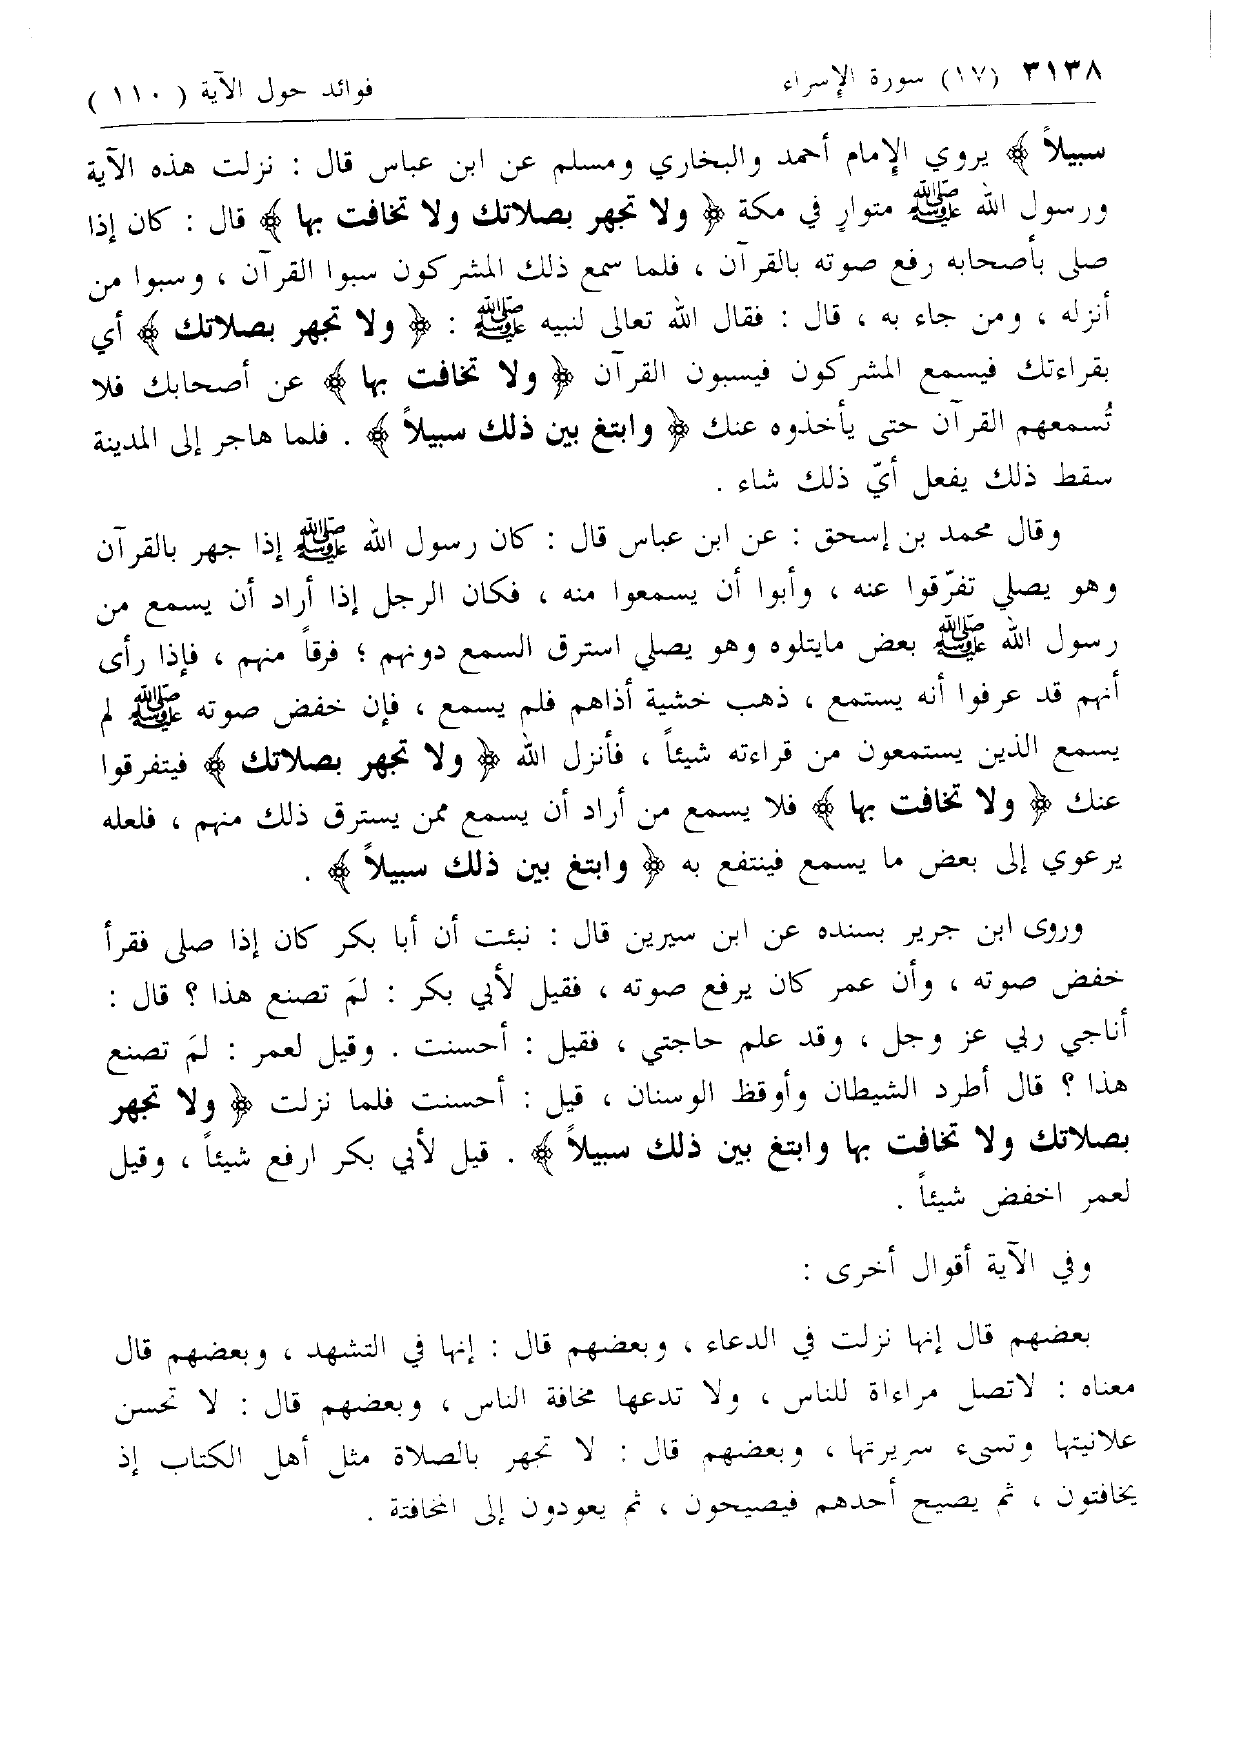 ٣١٣٨ (١٧) سورة الإسراء
فوائد حول الآية (١١٠)
سبيلاً ﴾ يروي الإمام أحمد والبخاري ومسلم عن ابن عباس قال : نزلت هذه الآية
ورسول الله ﷺ متوارٍ في مكة ﴿ ولا تجهر بصلاتك ولا تخافت بها ﴾ قال : كان إذا
صلى بأصحابه رفع صوته بالقرآن ، فلما سمع ذلك المشركون سبوا القرآن ، وسبوا من
أنزله ، ومن جاء به ، قال : فقال الله تعالى لنبيه ﷺ : ﴿ ولا تجهر بصلاتك ﴾ أي
بقراءتك فيسمع المشركون فيسبون القرآن ﴿ ولا تخافت بها ﴾ عن أصحابك فلا
تُسمعهم القرآن حتى يأخذوه عنك ﴿ وابتغ بين ذلك سبيلاً ﴾ . فلما هاجر إلى المدينة
سقط ذلك يفعل أيّ ذلك شاء .
وقال محمد بن إسحق : عن ابن عباس قال : كان رسول الله ﷺ إذا جهر بالقرآن
وهو يصلي تفرّقوا عنه ، وأبوا أن يسمعوا منه ، فكان الرجل إذا أراد أن يسمع من
رسول الله ﷺ بعض مايتلوه وهو يصلي استرق السمع دونهم ؛ فرقاً منهم ، فإذا رأى
أنهم قد عرفوا أنه يستمع ، ذهب خشية أذاهم فلم يسمع ، فإن خفض صوته ﷺ لم
يسمع الذين يستمعون من قراءته شيئاً ، فأنزل الله ﴿ ولا تجهر بصلاتك ﴾ فيتفرقوا
عنك ﴿ ولا تخافت بها ﴾ فلا يسمع من أراد أن يسمع ممن يسترق ذلك منهم ، فلعله
يرعوي إلى بعض ما يسمع فينتفع به ﴿ وابتغ بين ذلك سبيلاً ﴾ .
وروى ابن جرير بسنده عن ابن سيرين قال : نبئت أن أبا بكر كان إذا صلى فقرأ
خفض صوته ، وأن عمر كان يرفع صوته ، فقيل لأبي بكر : لمَ تصنع هذا ؟ قال :
أناجي ربي عز وجل ، وقد علم حاجتي ، فقيل : أحسنت . وقيل لعمر : لمَ تصنع
هذا ؟ قال أطرد الشيطان وأوقظ الوسنان ، قيل : أحسنت فلما نزلت ﴿ ولا تجهر
بصلاتك ولا تخافت بها وابتغ بين ذلك سبيلاً ﴾ . قيل لأبي بكر ارفع شيئاً ، وقيل
لعمر اخفض شيئاً .
وفي الآية أقوال أخرى :
بعضهم قال إنها نزلت في الدعاء ، وبعضهم قال : إنها في التشهد ، وبعضهم قال
معناه : لاتصل مراءاة للناس ، ولا تدعها مخافة الناس ، وبعضهم قال : لا تحسن
علانيتها وتسىء سريرتها ، وبعضهم قال : لا تجهر بالصلاة مثل أهل الكتاب إذ
يخافتون ، ثم يصيح أحدهم فيصيحون ، ثم يعودون إلى المخافتة .